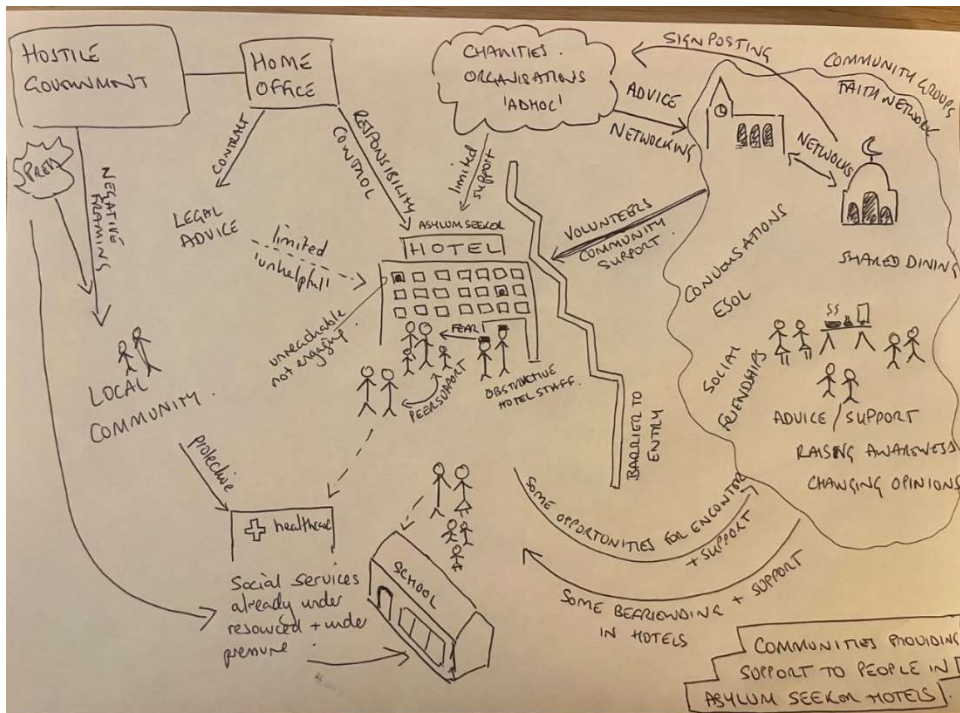 HOSTILE
GOVERNMENT
HOME
OFFICE
CHARITIES.
ORGANISATIONS
'ADHOC'
SIGNPOSTING
COMMUNITY GROUPS
FAITH NETWORK
ADVICE
NETWORKING
NETWORKS
PRESS
NEGATIVE
FRAMING
CONTRACT
RESPONSIBILITY
CONTROL
limited
support
LEGAL
ADVICE
limited
'unhelpful'
ASYLUM SEEKER
HOTEL
VOLUNTEERS
COMMUNITY
SUPPORT.
CONVERSATIONS
ESOL
SHARED DINING
unreachable
not engaging.
FEAR
PEER SUPPORT
OBSTRUCTIVE
HOTEL STAFF.
LOCAL
COMMUNITY.
SOCIAL
FRIENDSHIPS
ADVICE / SUPPORT
RAISING AWARENESS
CHANGING OPINIONS
BARRIER TO
ENTRY
protective
healthcare
Social Services
already under
resourced + under
pressure
SCHOOL
SOME OPPORTUNITIES FOR ENCONTER
+ SUPPORT
SOME BEFRIENDING + SUPPORT
IN HOTELS
COMMUNITIES PROVIDING
SUPPORT TO PEOPLE IN
ASYLUM SEEKOR HOTELS.